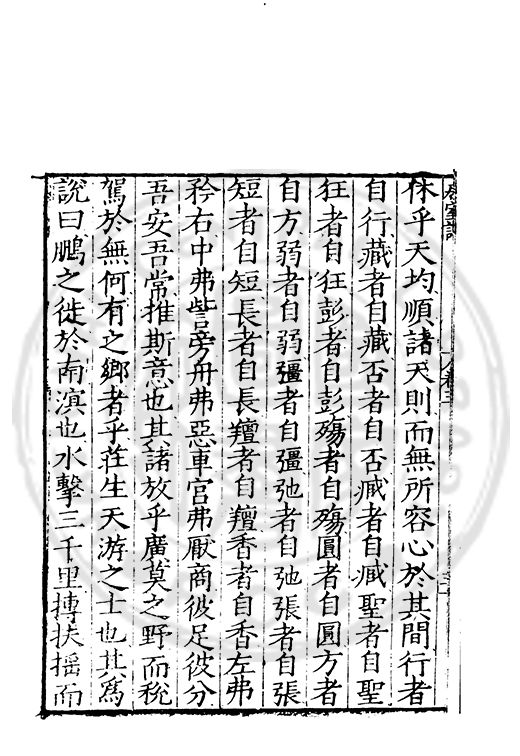 休乎天均順諸天則而無所容心於其間行者
自行藏者自藏否者自否臧者自臧聖者自聖
狂者自狂彭者自彭殤者自殤圓者自圓方者
自方弱者自弱彊者自彊弛者自弛張者自張
短者自短長者自長羶者自羶香者自香左弗
矜右中弗訾旁舟弗惡車宮弗厭商彼足彼分
吾安吾常推斯意也其諸放乎廣莫之野而稅
駕於無何有之鄉者乎莊生天游之士也其為
說曰鵬之徙於南溟也水擊三千里摶扶搖而